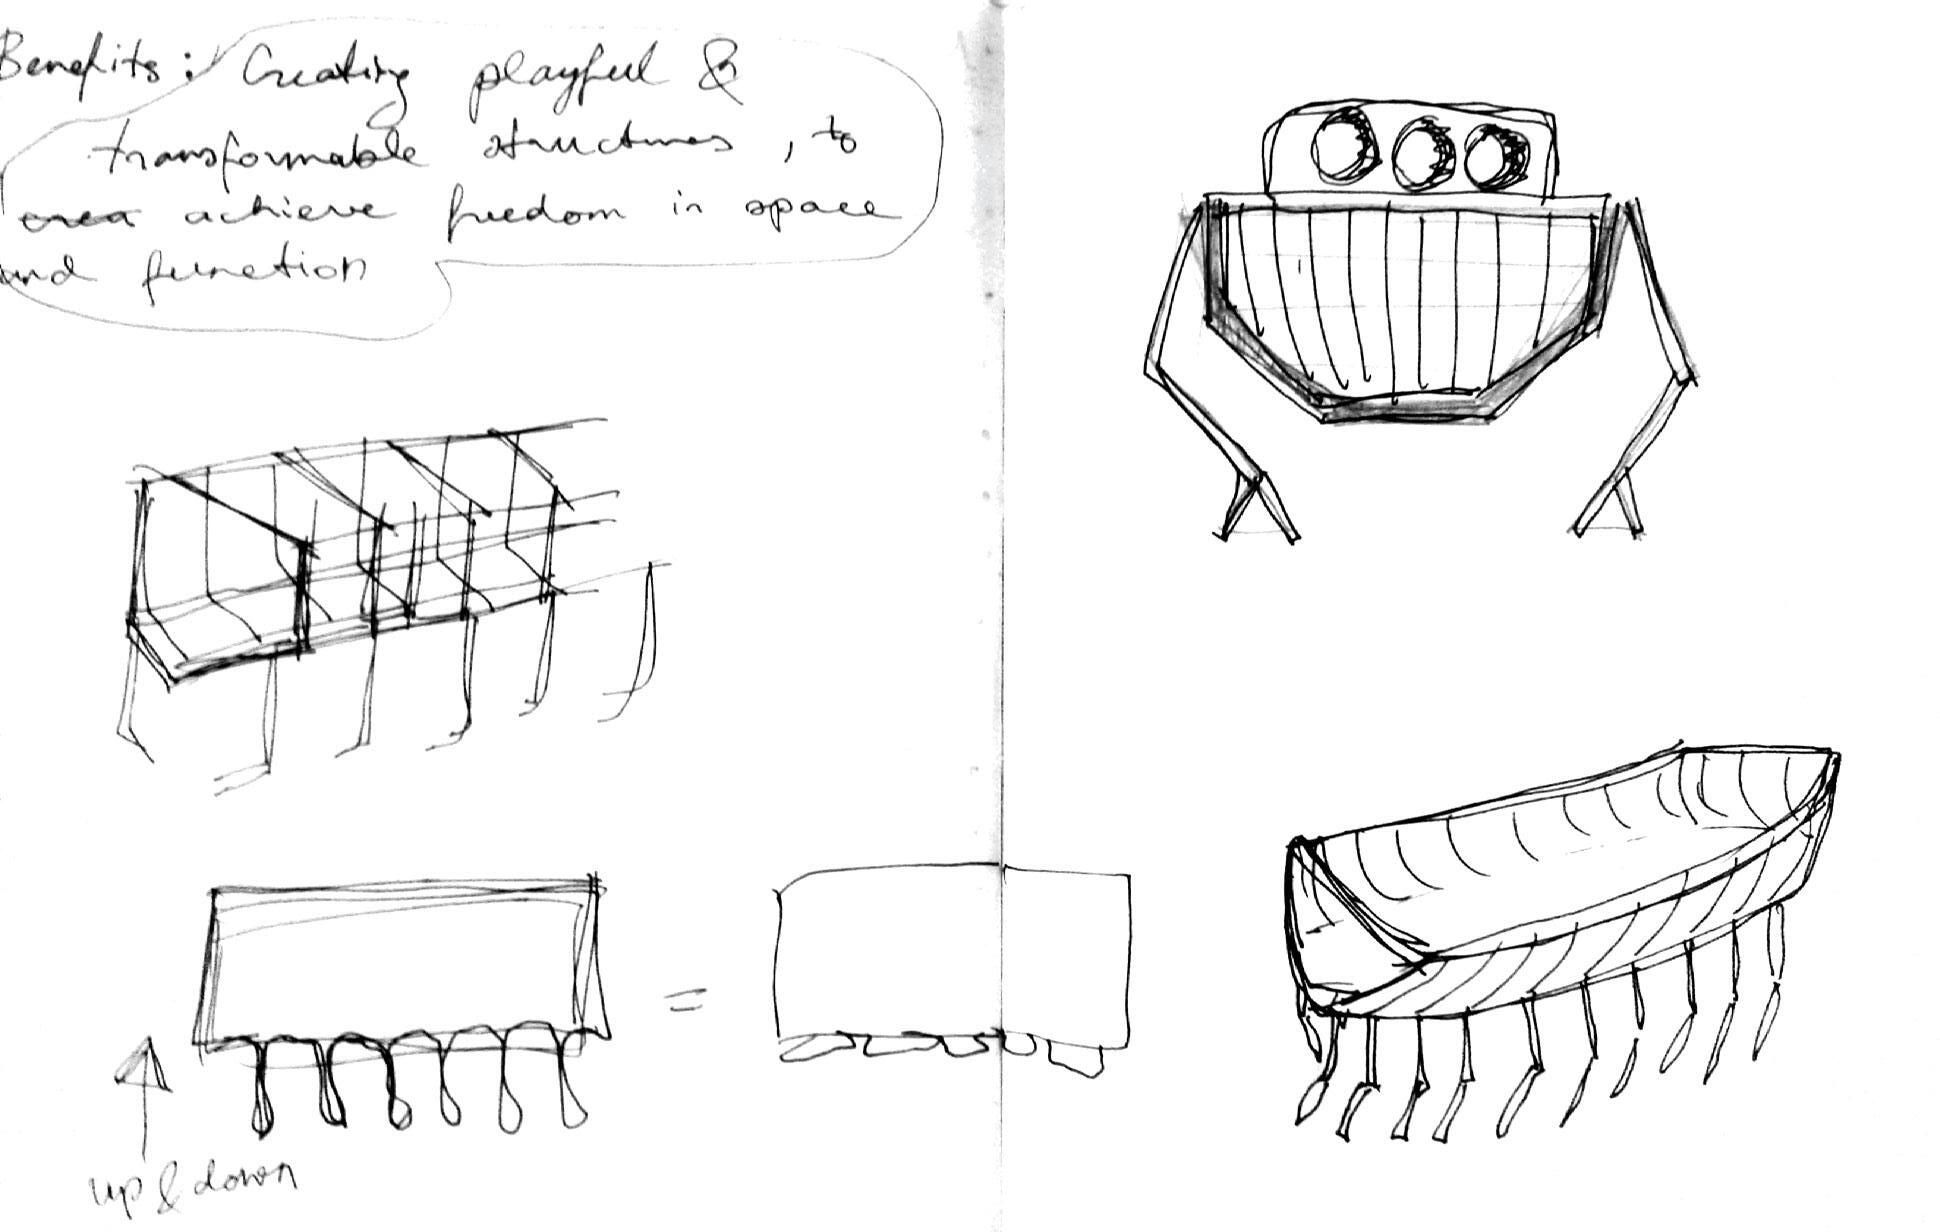 Benefits: Creating playful &
transformable structures, to
crea achieve freedom in space
and function
=
up & down